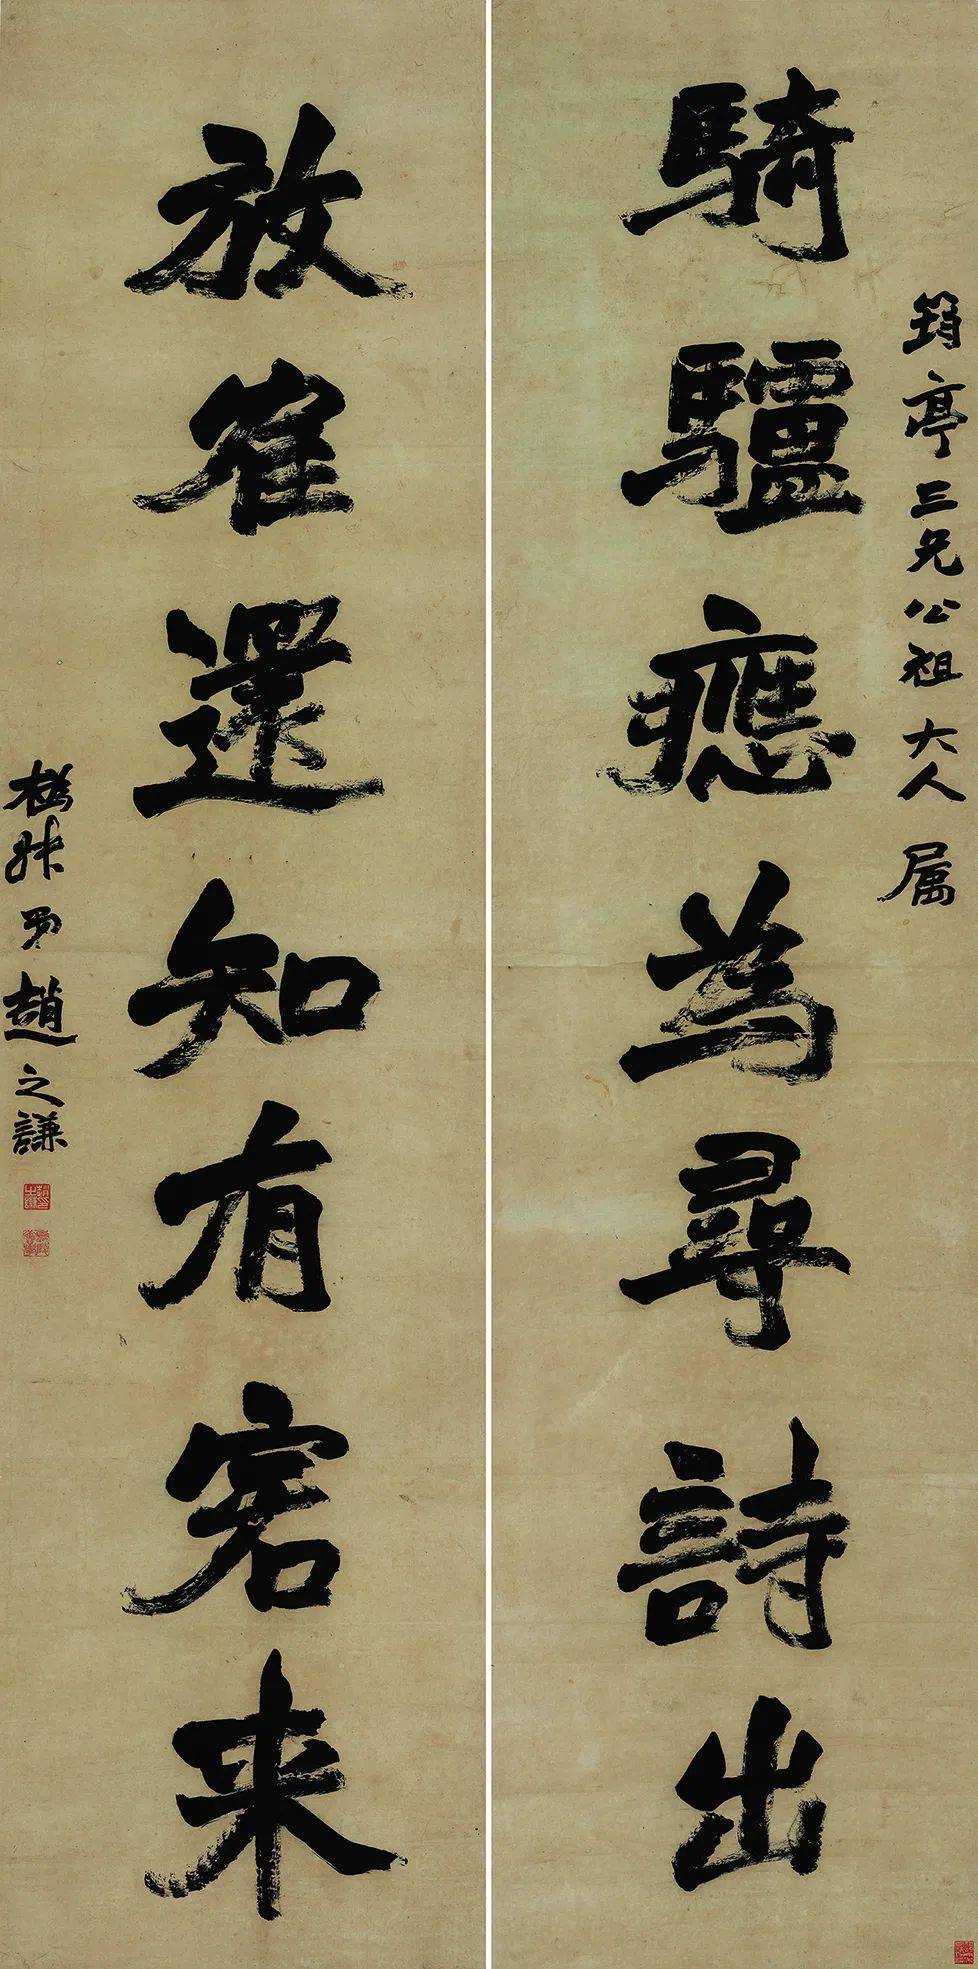 筠亭三兄公祖大人屬
騎驢應為尋詩出
放隺還知有客来
撝叔弟趙之謙